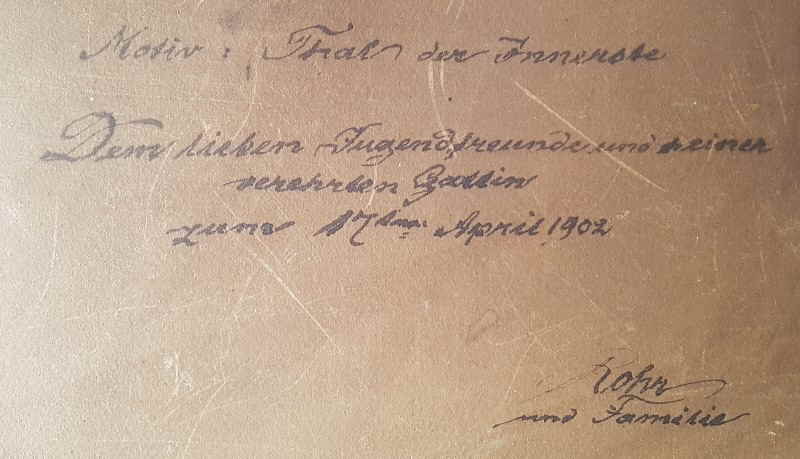 Motiv: Thal der Innerste
Dem lieben Jugendfreunde und seiner
verehrten Gattin
zum 17ten April 1902
Rohr
und Familie